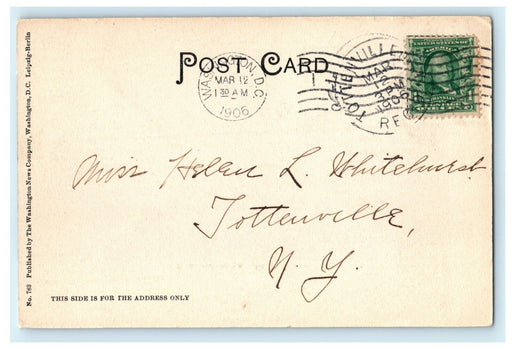 POST CARD
WASHINGTON, D.C.
MAR 12
1 30 AM
1906
TOTTENVILLE
MAR
12
3 PM
1906
REC'D
UNITED STATES OF AMERICA
Miss Helen L. Whitehurst
Tottenville,
N. Y.
THIS SIDE IS FOR THE ADDRESS ONLY
No. 783 Published by The Washington News Company, Washington, D.C. Leipzig-Berlin